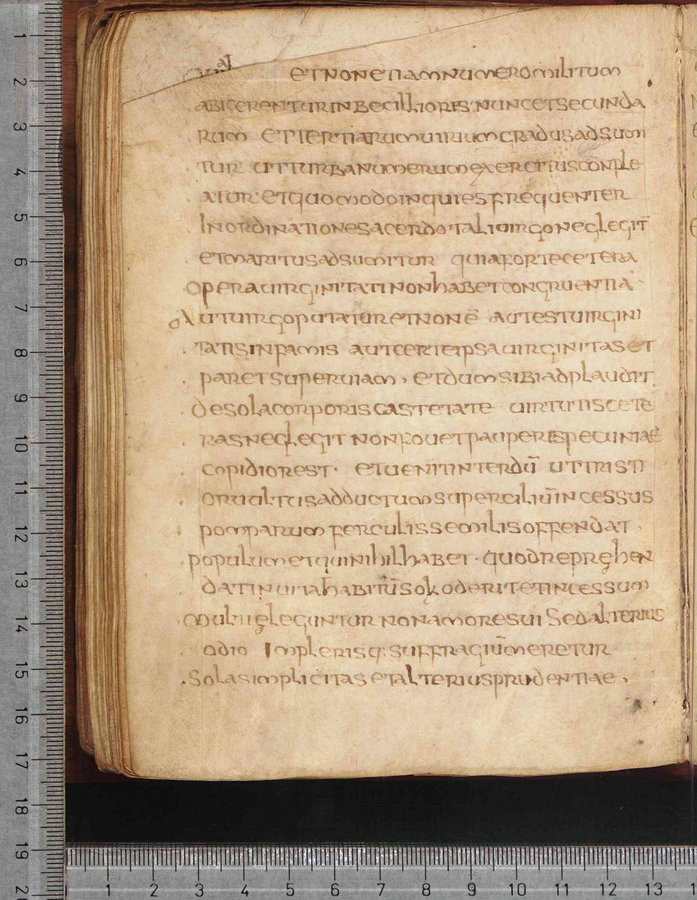 ET NON ETIAM NUMERO MILITUM
ABICERENTUR INBECILLIORES · NUNC ET SECUNDA
RUM ET TERTIARUM UIRIUM GRADUS ADSUM
TUR UT TURBA NUMERUM EXERCITUS CONPLE
ATUR · ET QUOMODO INQUIES FREQUENTER
IN ORDINATIONE SACERDOTALI UIRGO NEGLEGIT
ET MARITUS ADSUMITUR QUIA FORTE CETERA
OPERA UIRGINITATI NON HABET CONGRUENTIA ·
AUT UIRGO PUTATUR ET NON Ē AUT EST UIRGINI
TATIS INFAMIS AUT CERTE IPSA UIRGINITAS EI
PARET SUPERUIAM , ET DUM SIBI ADPLAUDIT
DE SOLA CORPORIS CASTETATE UIRTUTIS CETE
RAS NEGLEGIT NON FOUET PAUPERES PECUNIAE
COPIDIOR EST · ET UENIT INTERDŪ UT TRISTI
ADDUCTUM SUPERCILIŪ INCESSUS
POMPARUM FERCULIS SEMILIS OFFENDAT ·
POPULUM ET QUI NIHIL HABET · QUOD REPRĘHEN
DAT IN UITA HABITŪ ODERIT ET INCESSUM
MULTI ĘLEGUNTUR NON AMORE SUI SED ALTERIUS
ODIO IMPLERISQ: SUFFRAGIŪ MERETUR
SOLA SIMPLICITAS ET ALTERIUS PRUDENTIAE ,